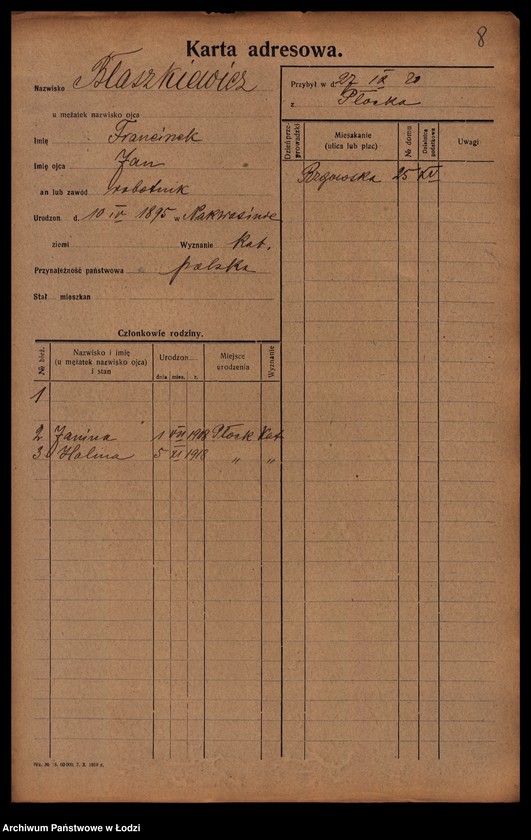 8
Karta adresowa.
Nazwisko Błaszkiewicz
u mężatek nazwisko ojca
Imię Franciszek
Imię ojca Jan
an lub zawód robotnik
Urodzon d. 10 IV 1895 w Nakwasinie
ziemi Wyznanie Kat.
Przynależność państwowa polska
Stał mieszkan
Przybył w d. 27 IX 20
z Płocka
Dzień przeprowadzki
Mieszkanie (ulica lub plac)
№ domu
Dzielnica
Uwagi
Rzgowska 25 XV
Członkowie rodziny.
№ bież.
Nazwisko i imię
(u mężatek nazwisko ojca)
i stan
Urodzon
dnia mies. r.
Miejsce urodzenia
Wyznanie
1
2 Janina 1 VII 1908 Płock Kat
3 Halina 5 XI 1918 „ „
Archiwum Państwowe w Łodzi